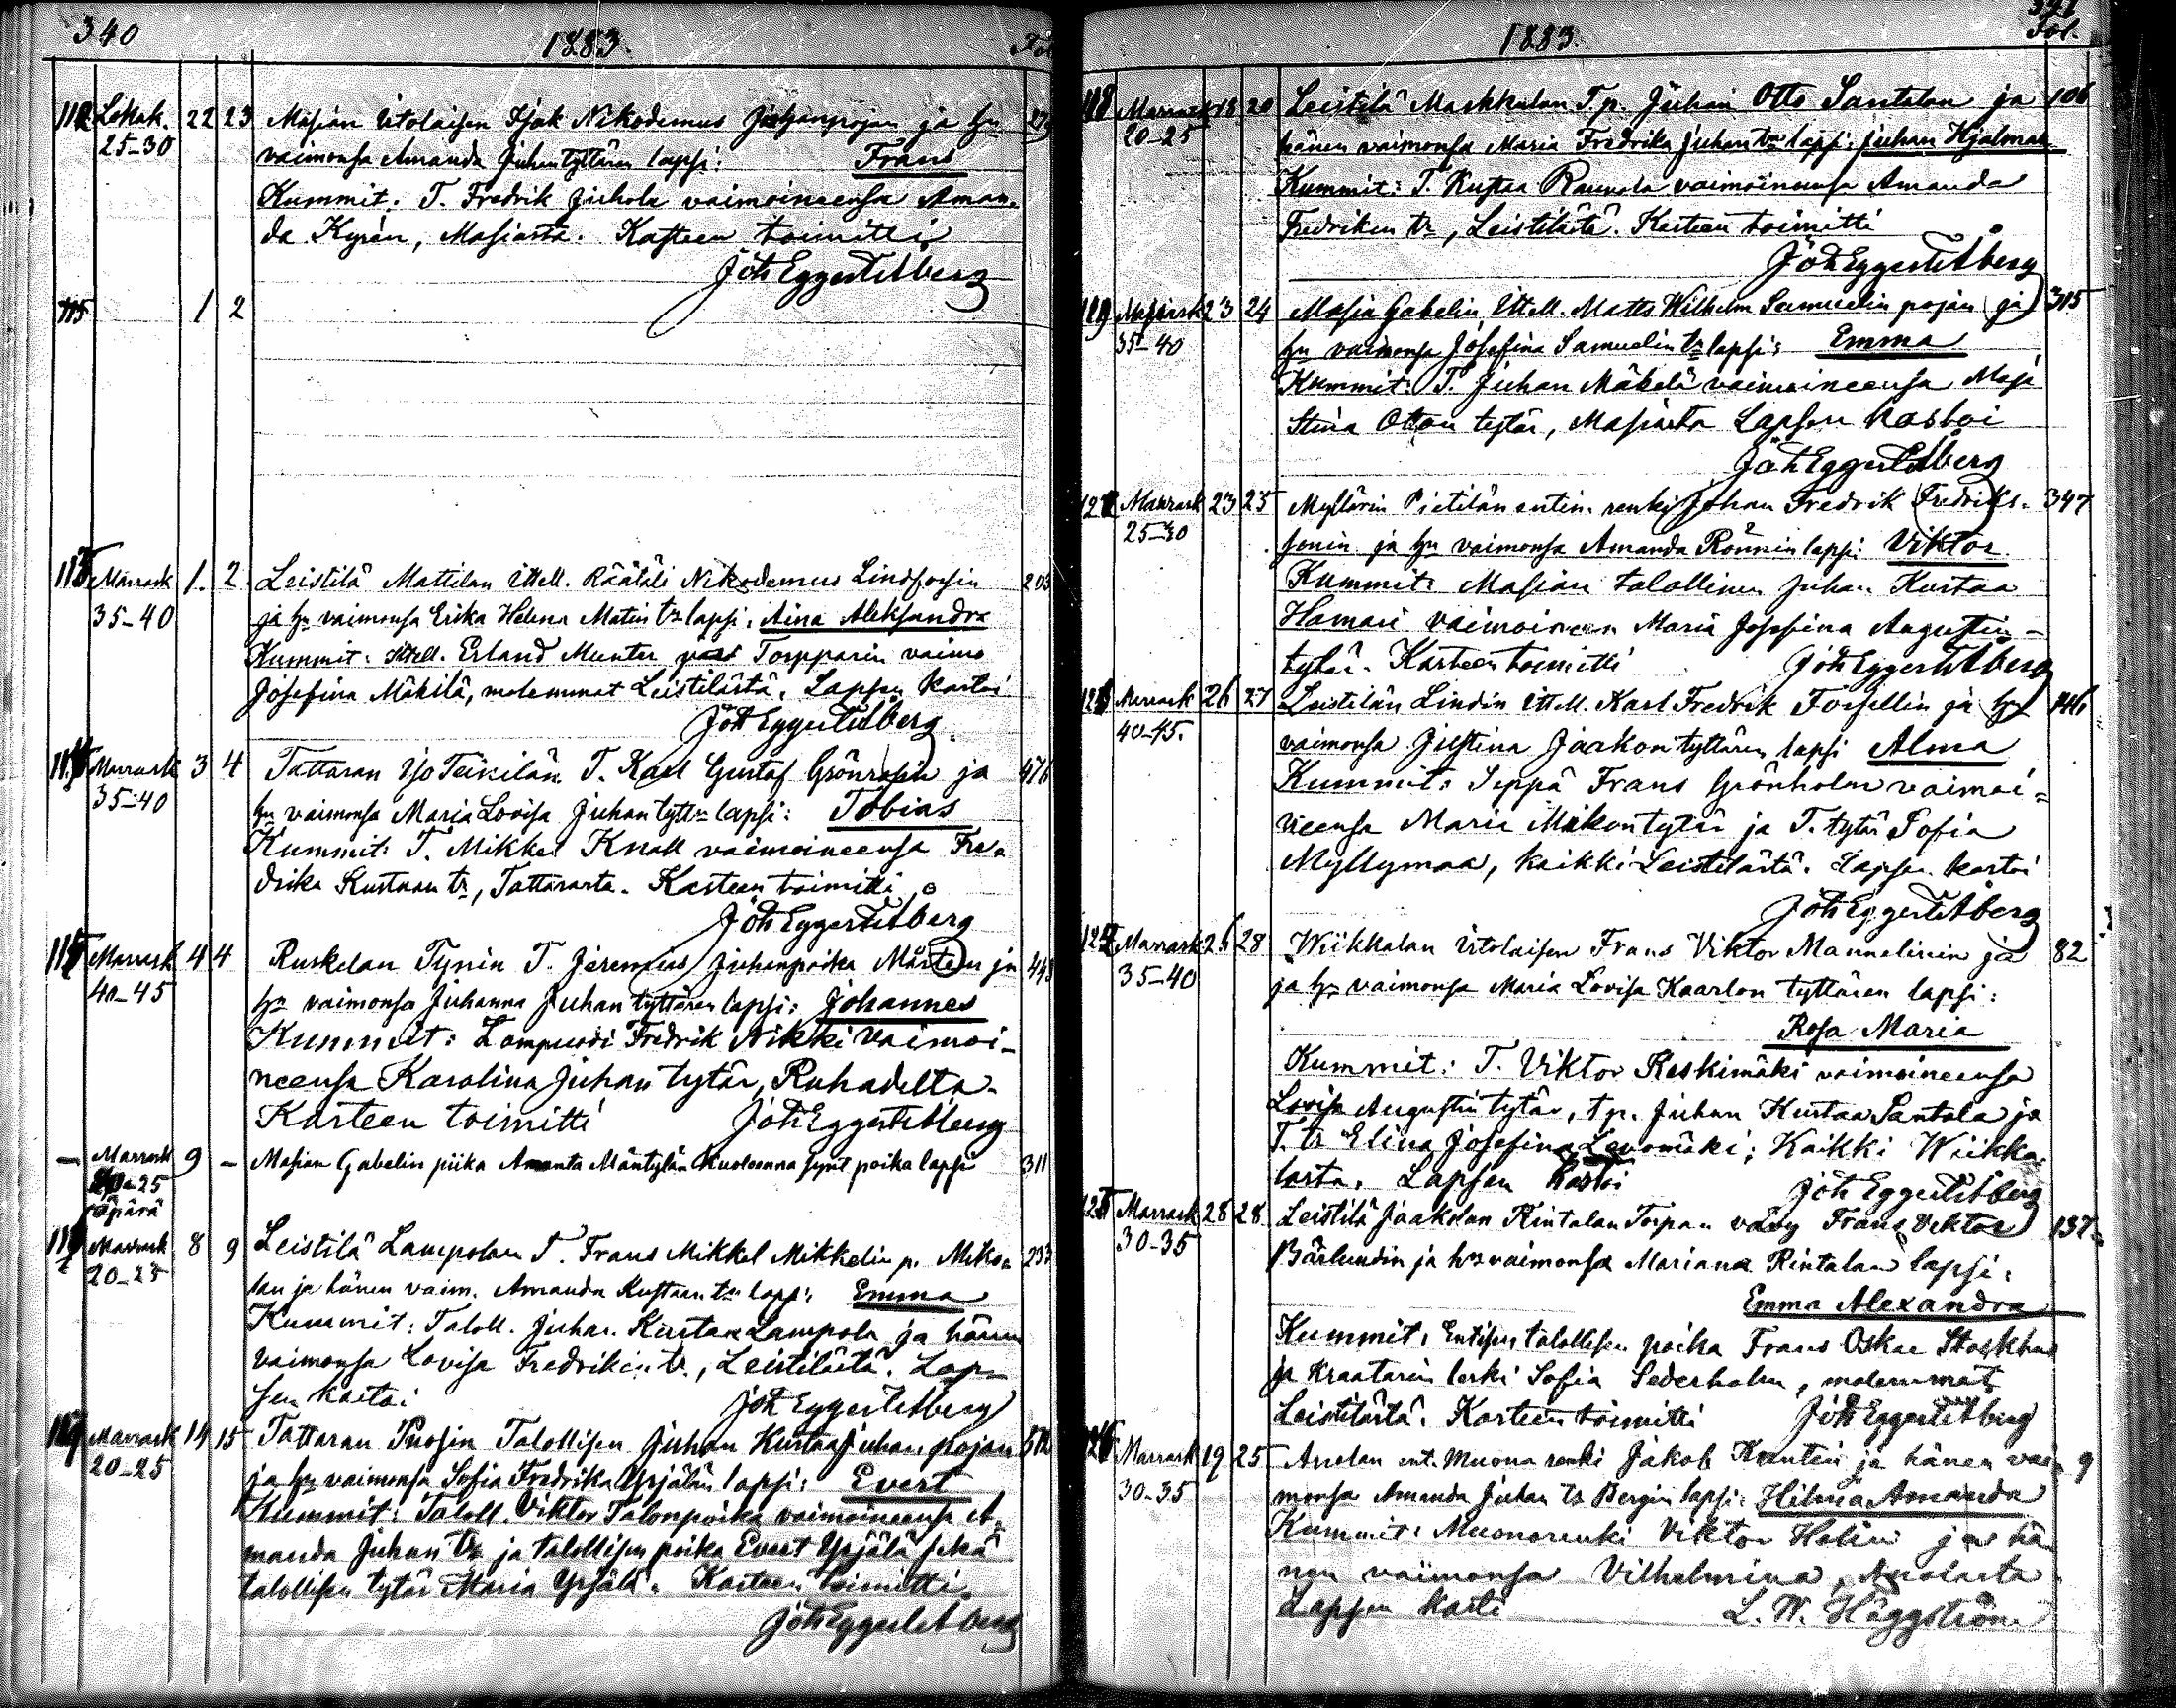 340
1883.
Fol
112 Lokak. 22 23 Masian Itolaisen Isak Nikodemus Juhanpojan ja hn
25-30 vaimonsa Amanda Juhantyttären lapsi: Frans
Kummit: T. Fredrik Juhola vaimoineensa Aman-
da Kyrän, Masiasta. Kasteen toimitti
Joh Eggert Elfberg
115 1 2
113 Marrask 1. 2. Leistilä Mattilan Ittell. Räätäli Nikodemus Lindforsin 203
35-40 ja hn vaimonsa Erika Helena Matin tr lapsi: Aina Aleksandra
Kummit: Ittell. Erland Munter Torpparin vaimo
Josefina Mäkilä, molemmat Leistilästä. Lapsen kastoi
Joh Eggert Elfberg
Marrask 3 4 Tattaran Iso Teikilän T. Karl Gustaf Grönroosin ja 476
35-40 hn vaimonsa Maria Lovisa Juhan tyttr lapsi: Tobias
Kummit: T. Mikkel Knall vaimoineensa Fre-
drika Kustaan tr, Tattarasta. Kasteen toimitti
Joh Eggert Elfberg
115 Marrask 4 4 Ruskelan Tynin T. Jeremias Juhanpoika Mårten ja 448
40-45 hn vaimonsa Juhanna Juhan tyttären lapsi: Johannes
Kummit: Lampuodi Fredrik Nikki vaimoi-
neensa Karolina Juhan tytär, Ruhadelta.
Kasteen toimitti Joh Eggert Elfberg
— Marrask 9 - Masian Gabelin piika Amanta Mäntylän kuoleenna synt poika lapsi 311
20-25
äpärä
Marrask 8 9 Leistilä Lampolan T. Frans Mikkel Mikkelin p. Miko- 233
20-25 lan ja hänen vaim. Amanda Kustaan tr lapsi: Emma
Kummit: Taloll. Juhan Kustaa Lampola ja hänen
vaimonsa Lovisa Fredrikin tr, Leistilästä. Lap-
sen kastoi Joh Eggert Elfberg
Marrask 14 15 Tattaran Puosin Talollisen Juhan Kustaa Juhan pojan 512
20-25 ja hn vaimonsa Sofia Fredrika Yrjälän lapsi: Evert
Kummit: Taloll. Viktor Talonpoika vaimoineensa A-
manda Juhan tr ja talollisen poika Evert Yrjälä sekä
talollisen tytär Maria Yrjälä. Kasteen toimitti
Joh Eggert Elfberg
1883.
Fol.
118 Marrask 18 20 Leistilä Markkulan T.p. Juhan Otto Santalan ja 106
20-25 hänen vaimonsa Maria Fredrika Juhan tr lapsi: Juhan Hjalmar
Kummit: T. Kustaa Rauvola vaimoineensa Amanda
Fredrikin tr, Leistilästä. Kasteen toimitti
Joh Eggert Elfberg
119 Marrask 23 24 Masia Gabelin Ittell. Matts Wilhelm Samuelin pojan ja 315
35-40 hn vaimonsa Josefina Samuelin tr lapsi: Emma
Kummit: T. Juhan Mäkelä vaimoineensa Maja
Stina Otton tytär, Masiasta Lapsen kastoi
Joh Eggert Elfberg
Marrask 23 25 Myllärin Pietilän entin. renki Johan Fredrik Fredriks- 347
25-30 sonin ja hn vaimonsa Amanda Rönnin lapsi Viktor.
Kummit: Masian talollinen Juhan Kustaa
Hamari vaimoineen Maria Josefina Augustin-
tytär. Kasteen toimitti Joh Eggert Elfberg
Marrask 26 27 Leistilän Lindin Ittell. Karl Fredrik Forsellin ja hn 146
40-45. vaimonsa Justina Jaakon tyttären lapsi Alma
Kummit: Seppä Frans Grönholm vaimoi-
neensa Maria Mikon tytär ja T. tytär Sofia
Myllymaa, kaikki Leistilästä. Lapsen kastoi
Joh Eggert Elfberg
Marrask 26 28 Wiikkalan Itolaisen Frans Viktor Mannelinin ja 82
35-40 ja hn vaimonsa Maria Lovisa Kaarlon tyttären lapsi:
Rosa Maria
Kummit: T. Viktor Keskimäki vaimoineensa
Lovisa Augustin tytär, t.p. Juhan Kustaa Santala ja
T. tr Elina Josefina Levomäki; Kaikki Wiikka-
lasta. Lapsen kastoi Joh Eggert Elfberg
Marrask 28 28 Leistilä Jaakolan Rintalan Torpan vävy Frans Viktor 137.
30-35 Bärlundin ja hn vaimonsa Mariana Rintalan lapsi:
Emma Alexandra
Kummit: Entisen talollisen poika Frans Oskar Stockhus
ja Kraatarin leski Sofia Sederholm, molemmat
Leistilästä. Kasteen toimitti Joh Eggert Elfberg
Marrask 19 25 Anolan ent. Muona renki Jakob Kanten ja hänen vai- 9
30-35 monsa Amanda Juhan tr Bergin lapsi: Hilma Amanda
Kummit: Muonarenki Viktor Holm ja hä-
nen vaimonsa Vilhelmina, Anolasta
Lapsen kasti L. W. Häggström